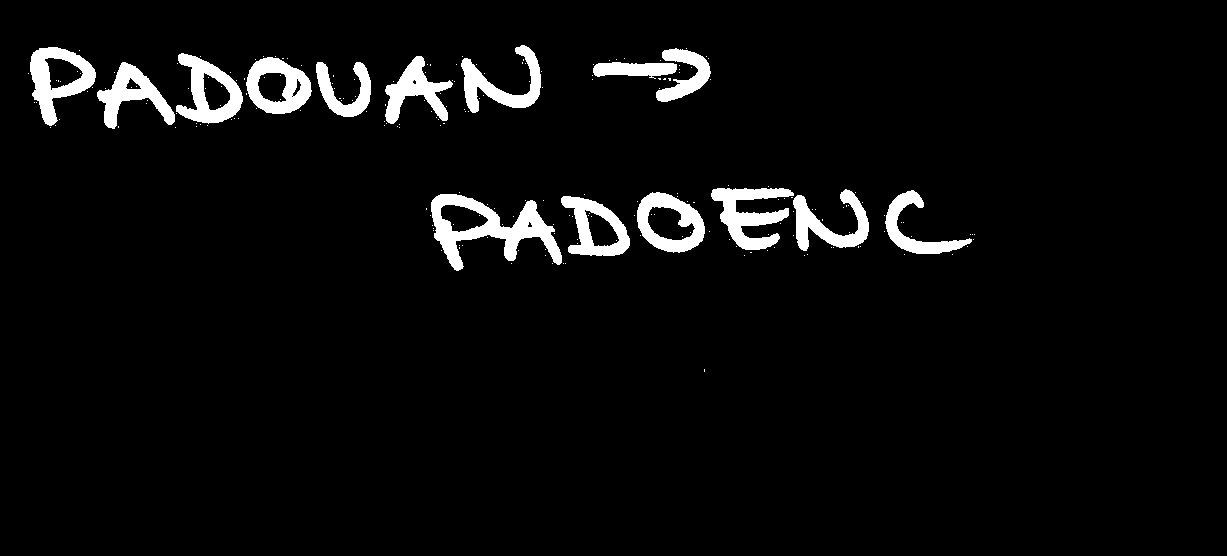 PADOUAN →
PADOENC